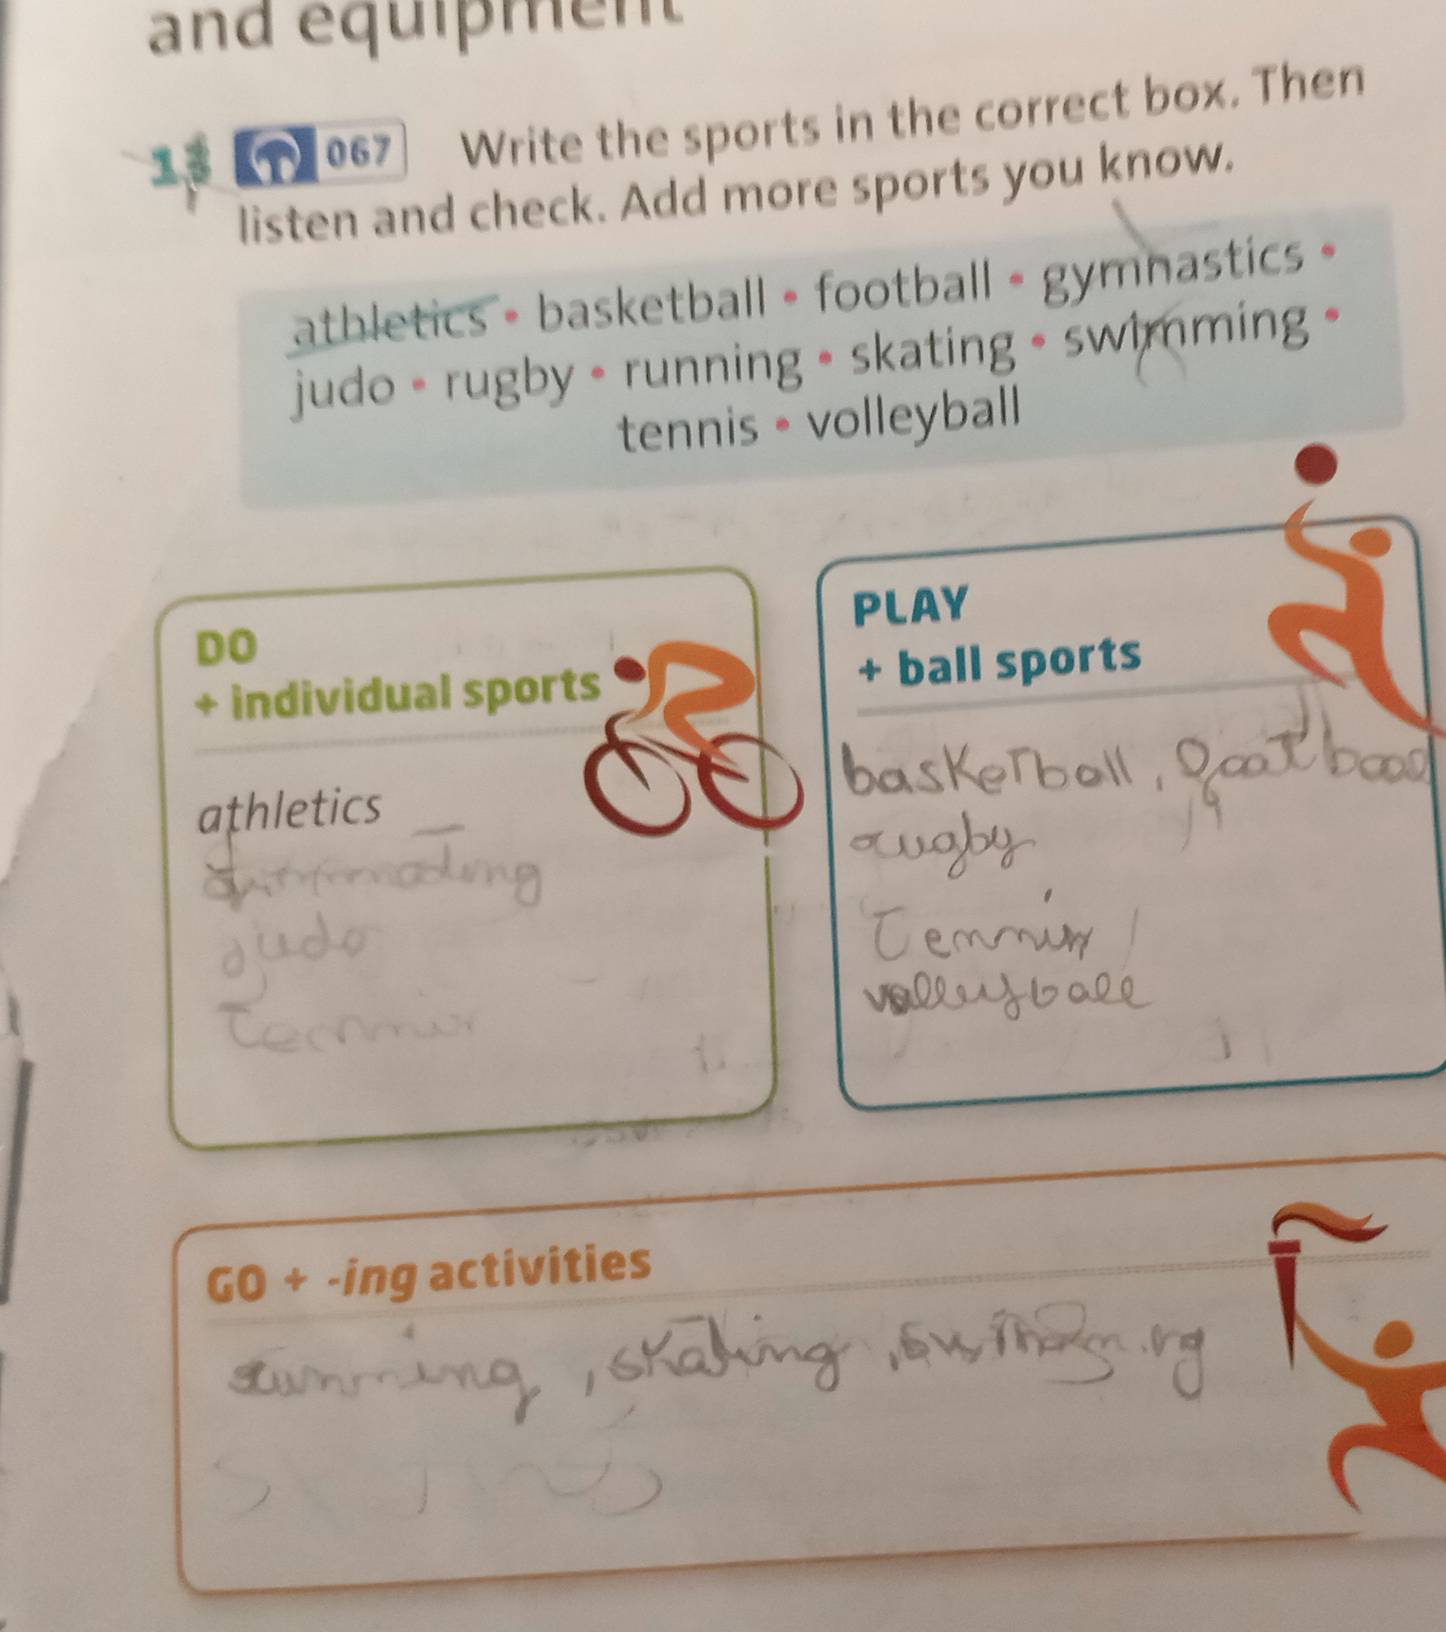 and equipment
067 Write the sports in the correct box. Then
listen and check. Add more sports you know.
athletics • basketball • football • gymnastics •
judo • rugby • running • skating • swimming •
tennis • volleyball
DO
+ individual sports
athletics
judo
PLAY
+ ball sports
basketball,
rugby
volleyball
GO + -ing activities
running, skating,